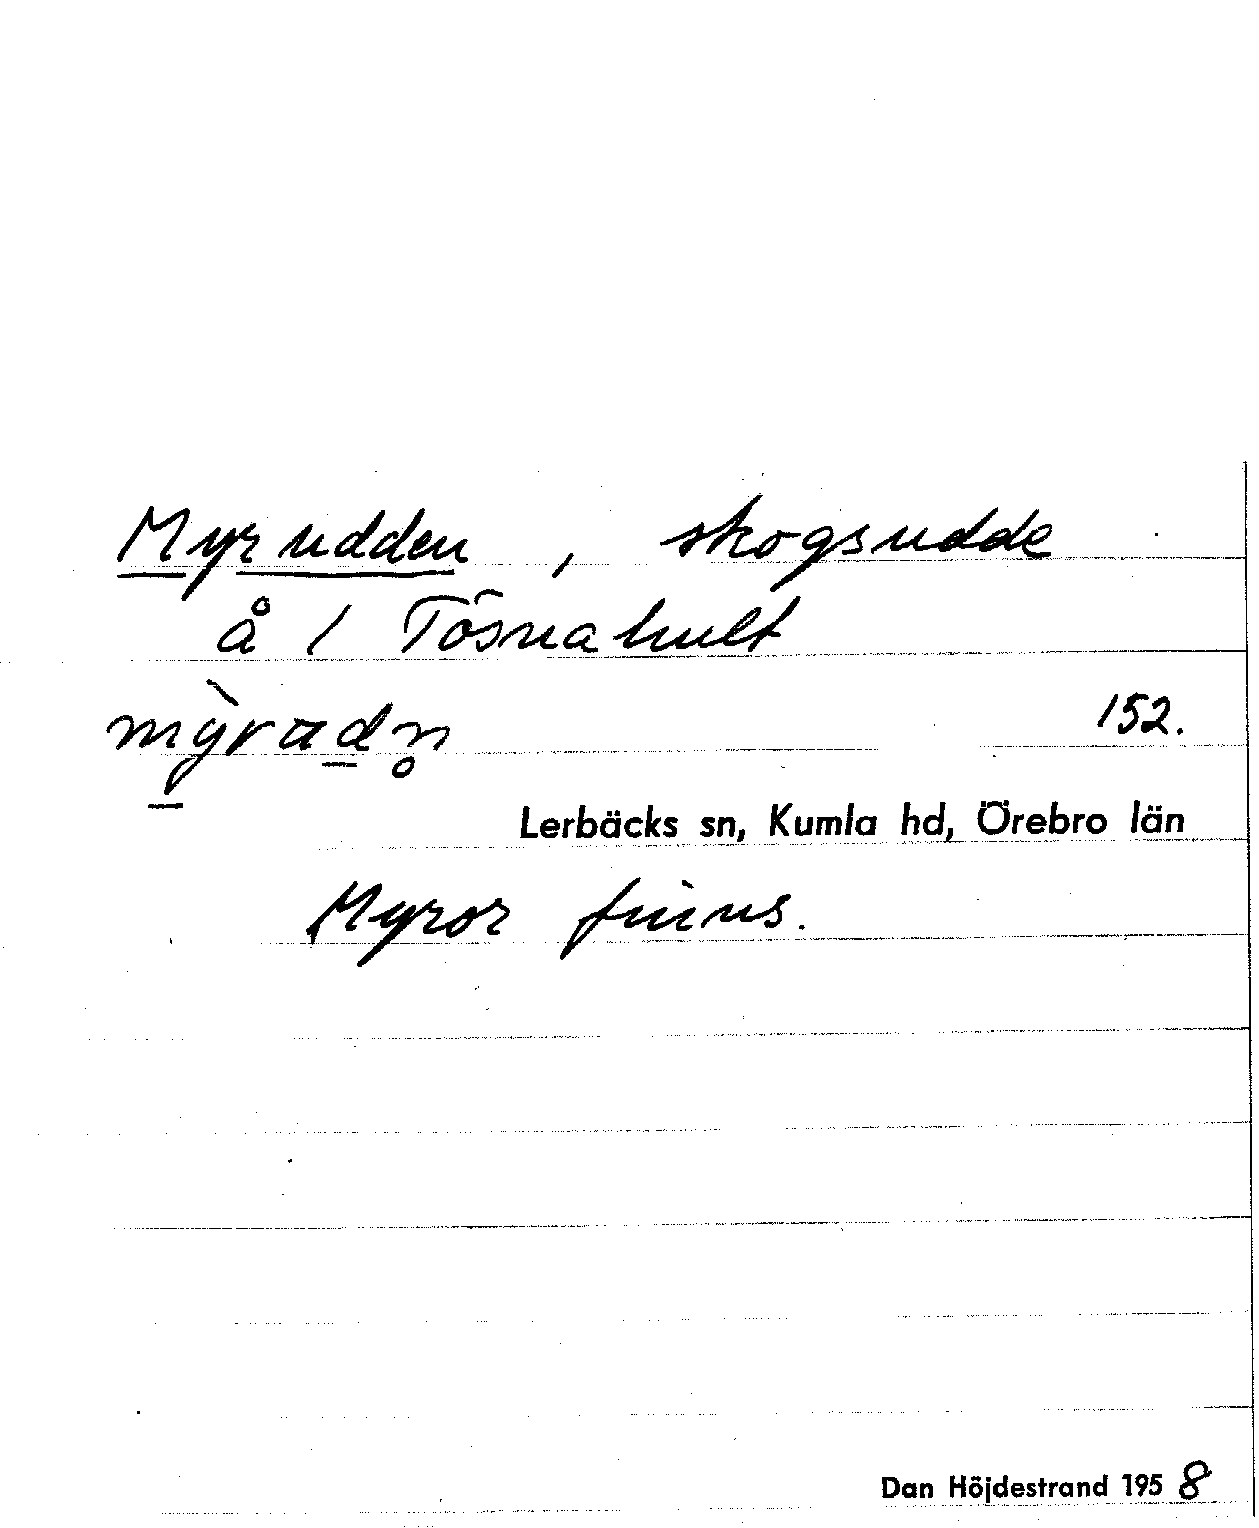 Myrudden, skogsudde
å 1 Tösnahult
mỳradn̥
152.
Lerbäcks sn, Kumla hd, Örebro län
Myror finns.
Dan Höjdestrand 1958